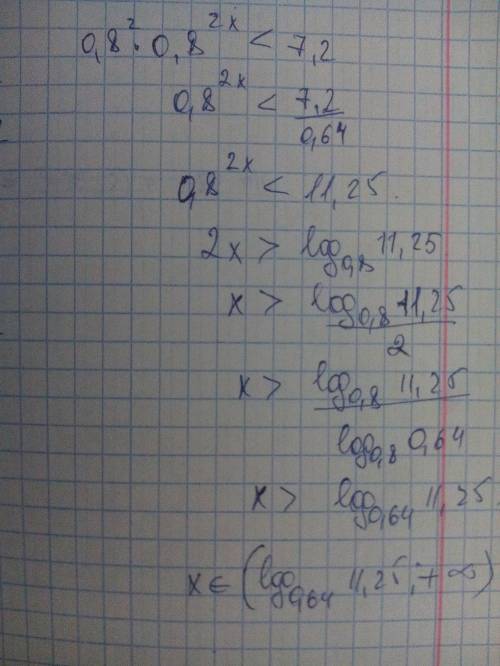 0,8² · 0,8^{2x} < 7,2
0,8^{2x} < 7,2/0,64
0,8^{2x} < 11,25.
2x > log_{0,8} 11,25
x > log_{0,8} 11,25 / 2
x > log_{0,8} 11,25 / log_{0,8} 0,64
x > log_{0,64} 11,25
x ∈ (log_{0,64} 11,25; +∞)